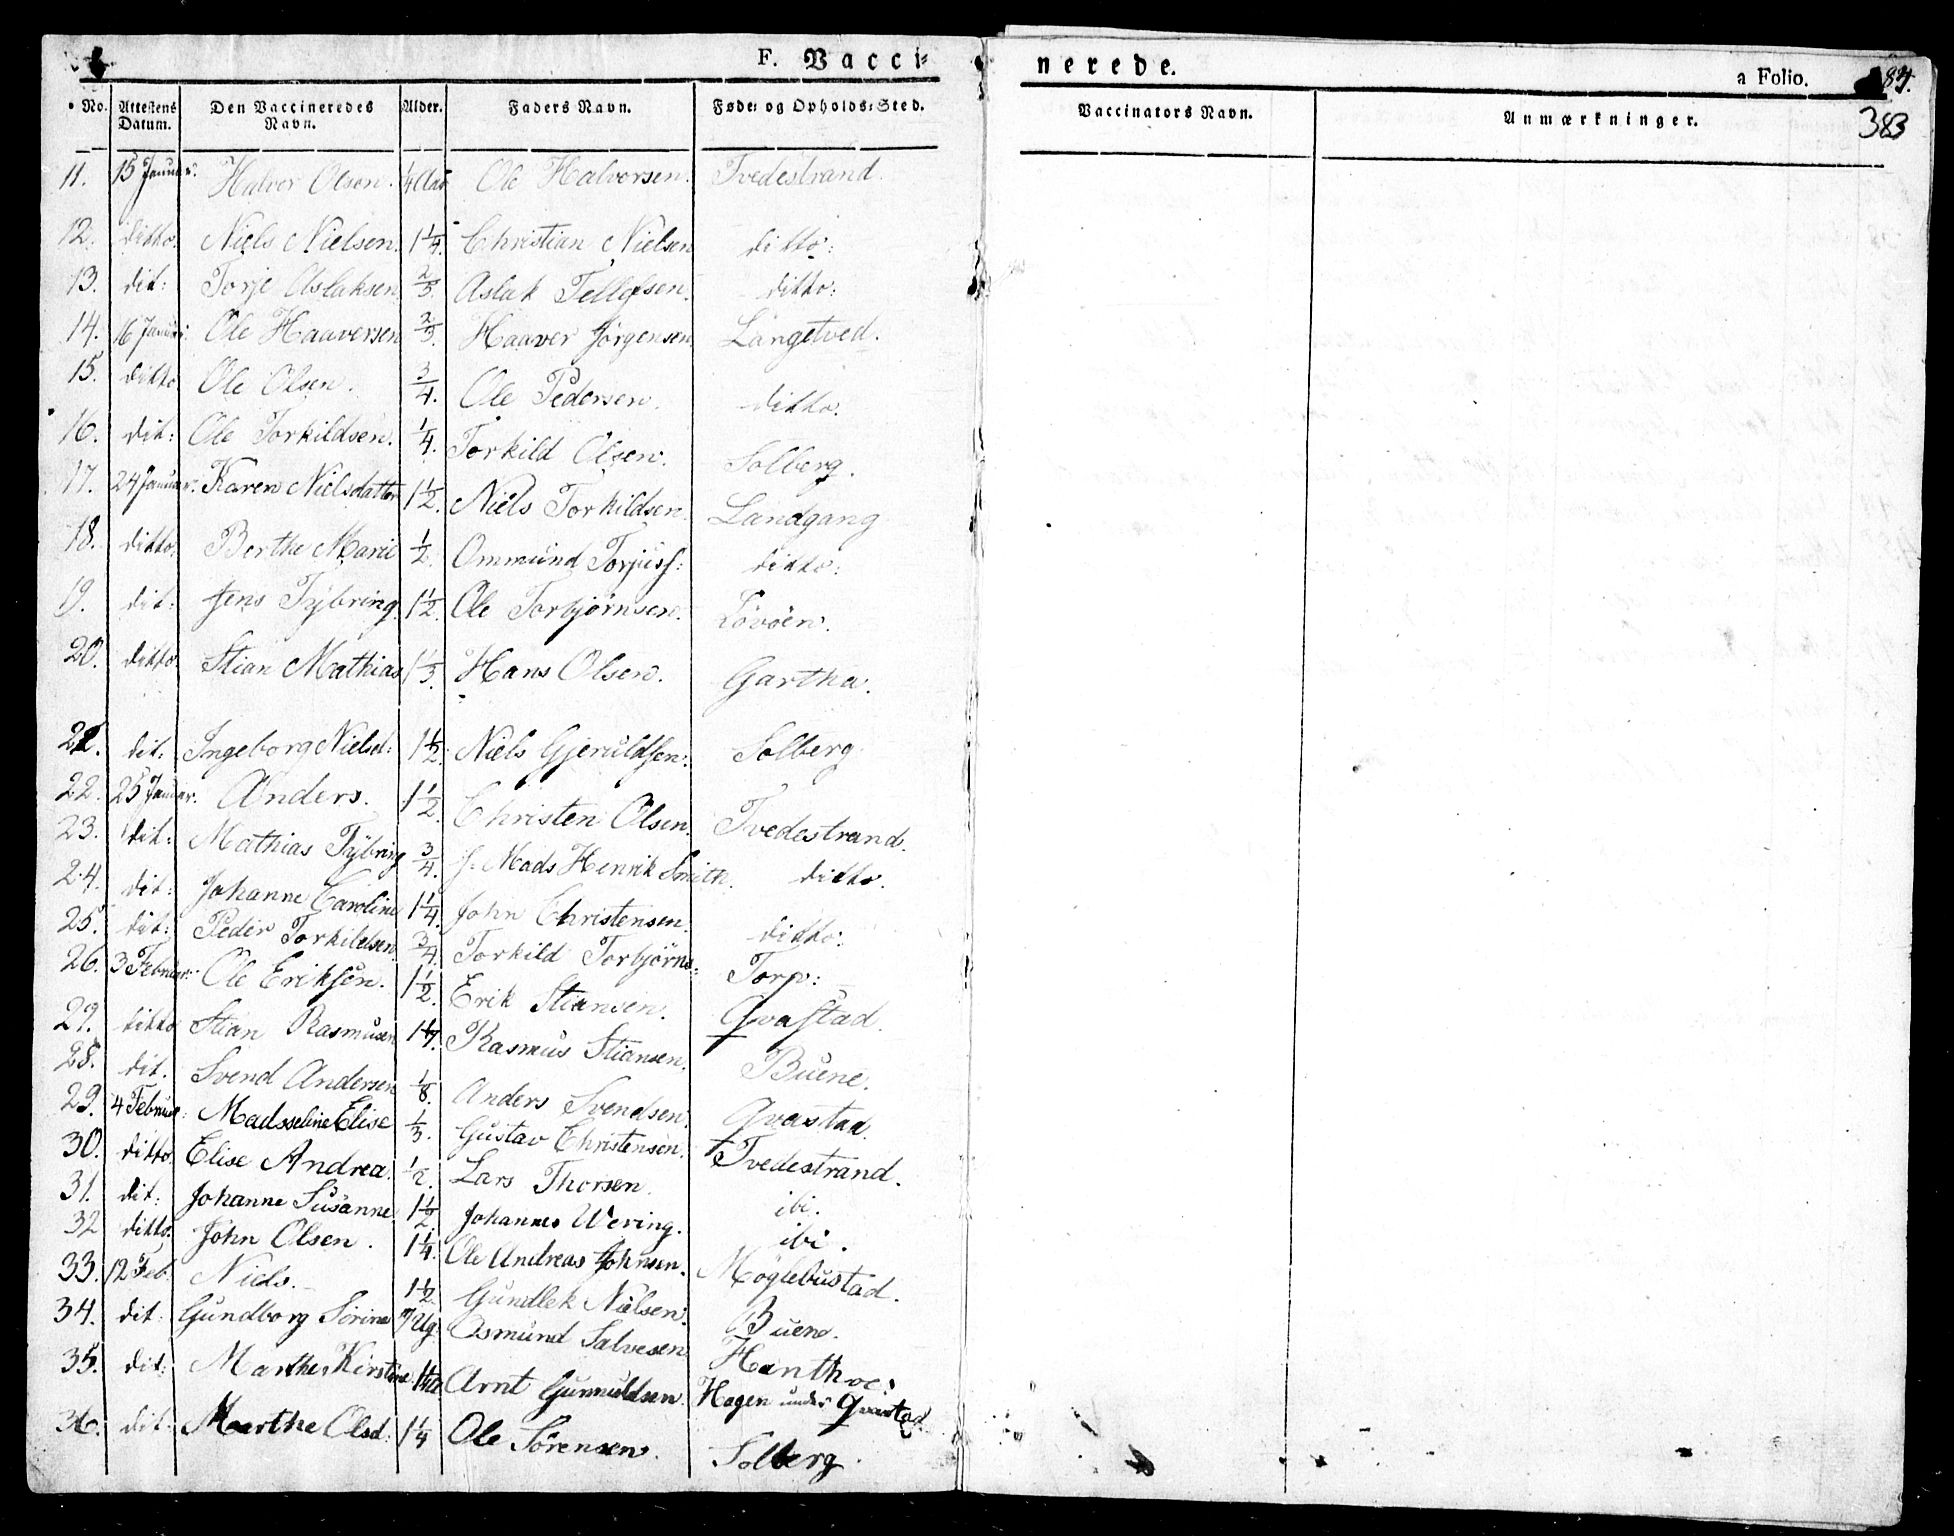 F. Vacci-
nerede.
a Folio.
84.
383
No. Attestens Datum. Den Vaccineredes Navn. Alder. Faders Navn. Føde- og Opholds-Sted. Vaccinators Navn. Anmærkninger.
11. 15 Januar: Halvor Olsen. 1/4 Aar Ole Halvorsen. Tvedestrand.
12. ditto. Niels Nielsen. 1 1/4. Christian Nielsen ditto:
13. dit: Torje Aslaksen 2/3. Aslak Tellefsen. ditto:
14. 16 Januar: Ole Haaversen 2/3. Haaver Jörgensen Langetved.
15. ditto Ole Olsen. 3/4. Ole Pedersen. ditto.
16. dit: Ole Torkildsen. 1/4. Torkild Olsen. Solberg.
17. 24 Januar. Karen Nielsdatter 1 1/2. Niels Torkildsen. Landgang
18. ditto. Berthe Marie 1/2. Ommund Torjusf: ditto:
19. dit: Jens Tybring. 1 1/2. Ole Torbjörnsen. Lövöen.
20. ditto. Stian Mathias 1 1/3. Hans Olsen. Gartha.
21. dit: Ingeborg Nielsd: 1 1/2. Niels Gjeruldsen. Solberg
22. 25 Januar. Anders. 1 1/2. Christen Olsen. Tvedestrand.
23. dit: Mathias Tybring 3/4. J. Mads Henrik Smith. ditto.
24. dit: Johanne Caroline 1 1/4. John Christensen. ditto:
25. dit: Peder Torkildsen. 3/4. Torkild Torbjörns: Torp:
26. 3 Februar: Ole Eriksen. 1 1/2. Erik Stiansen. Qvastad.
27. ditto Stian Rasmusen Rasmus Stiansen. Buene.
28. dit. Svend Andersen 1/8. Anders Svendsen. Qvastad.
29. 4 Februar: Madsseline Elise 1/3. Gustav Christensen. Tvedestrand.
30. ditto. Elise Andrea. 1/2. Lars Thorsen. ibi.
31. dit: Johanne Susanne 1 1/2. Johannes Wering. ibi.
32 ditto. John Olsen. 1 1/4. Ole Andreas Johnsen. Möglebustad.
33. 12 Feb. Niels. 1 1/2 Gundlek Nielsen. Buene.
34. dit: Gundborg Sörine 7 Ug: Osmund Salvesen Hanthoe:
35. dit: Marthe Kirstine Arnt Gunnuldsen. Hagen under Qvastad
36. dit: Marthe Olsd: 1 1/4 Ole Sörensen. Solberg.